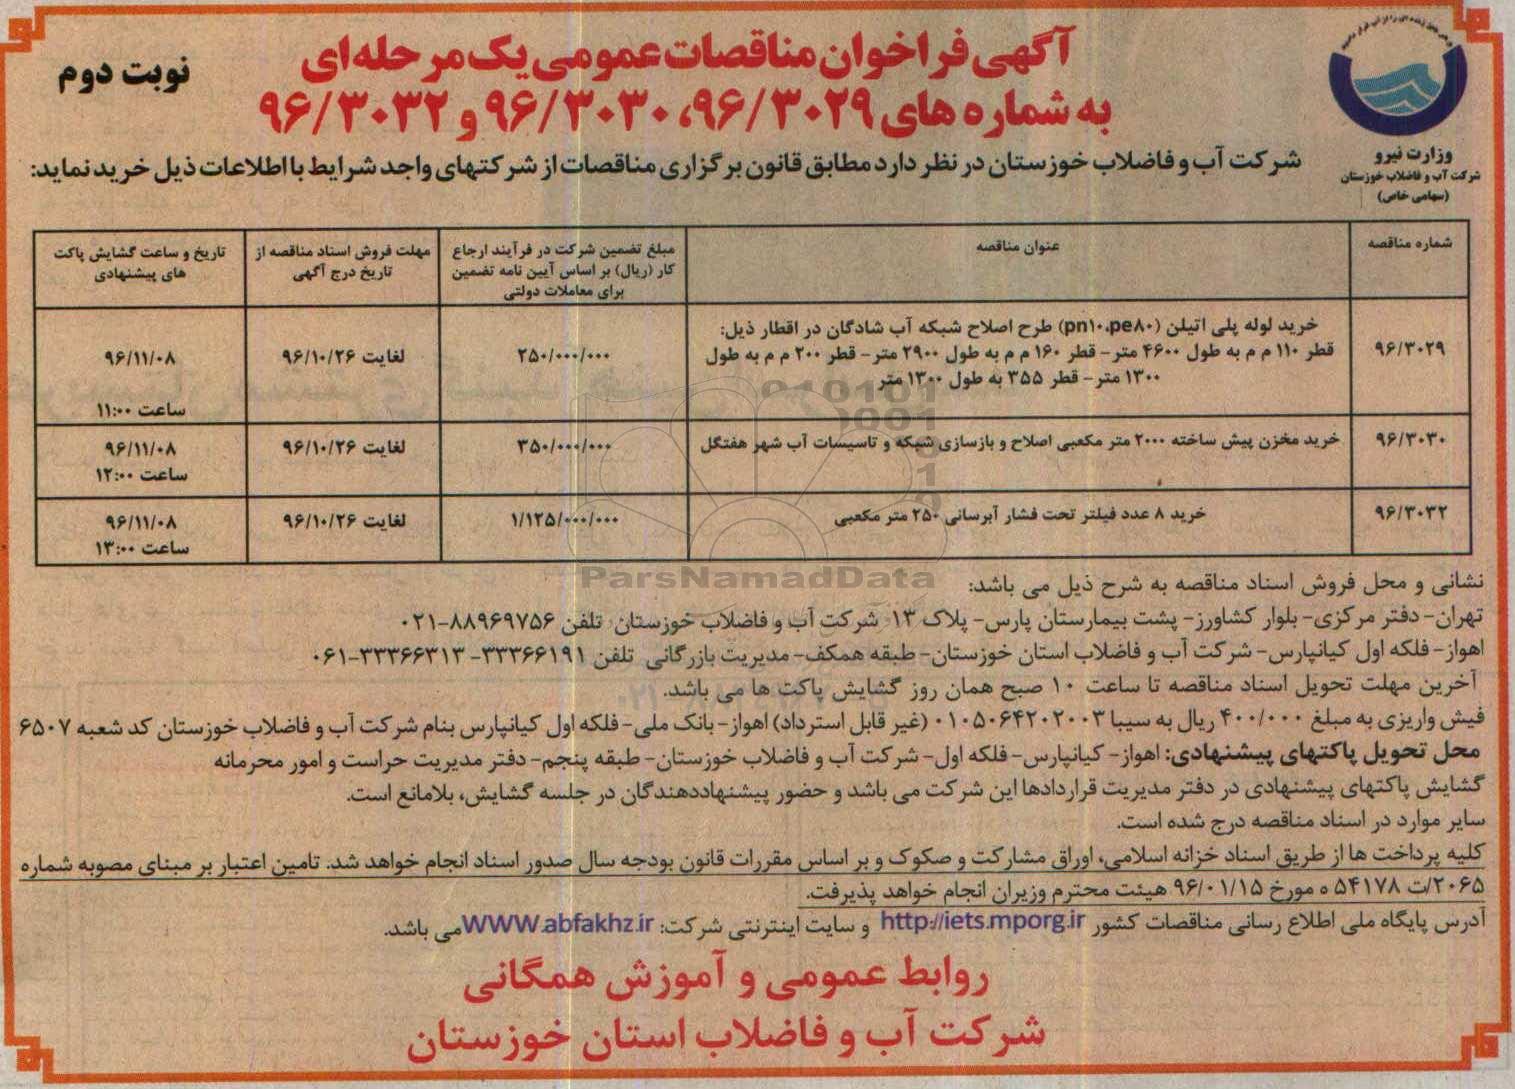 آگهی فراخوان مناقصات عمومی یک مرحله‌ای
به شماره های ۹۶/۳۰۲۹، ۹۶/۳۰۳۰ و ۹۶/۳۰۳۲
نوبت دوم
وزارت نیرو
شرکت آب و فاضلاب خوزستان
(سهامی خاص)
شرکت آب و فاضلاب خوزستان در نظر دارد مطابق قانون برگزاری مناقصات از شرکتهای واجد شرایط با اطلاعات ذیل خرید نماید:
شماره مناقصه
عنوان مناقصه
مبلغ تضمین شرکت در فرآیند ارجاع
کار (ریال) بر اساس آیین نامه تضمین
برای معاملات دولتی
مهلت فروش اسناد مناقصه از
تاریخ درج آگهی
تاریخ و ساعت گشایش پاکت
های پیشنهادی
۹۶/۳۰۲۹
خرید لوله پلی اتیلن (pn۱۰،pe۸۰) طرح اصلاح شبکه آب شادگان در اقطار ذیل:
قطر ۱۱۰ م م به طول ۴۶۰۰ متر- قطر ۱۶۰ م م به طول ۲۹۰۰ متر- قطر ۲۰۰ م م به طول
۱۳۰۰ متر- قطر ۳۵۵ به طول ۱۳۰۰ متر
۲۵۰/۰۰۰/۰۰۰
لغایت ۹۶/۱۰/۲۶
۹۶/۱۱/۰۸
ساعت ۱۱:۰۰
۹۶/۳۰۳۰
خرید مخزن پیش ساخته ۲۰۰۰ متر مکعبی اصلاح و بازسازی شبکه و تاسیسات آب شهر هفتگل
۳۵۰/۰۰۰/۰۰۰
لغایت ۹۶/۱۰/۲۶
۹۶/۱۱/۰۸
ساعت ۱۲:۰۰
۹۶/۳۰۳۲
خرید ۸ عدد فیلتر تحت فشار آبرسانی ۲۵۰ متر مکعبی
۱/۱۲۵/۰۰۰/۰۰۰
لغایت ۹۶/۱۰/۲۶
۹۶/۱۱/۰۸
ساعت ۱۳:۰۰
ParsNamadData
نشانی و محل فروش اسناد مناقصه به شرح ذیل می باشد:
تهران- دفتر مرکزی- بلوار کشاورز- پشت بیمارستان پارس- پلاک ۱۳ شرکت آب و فاضلاب خوزستان تلفن ۸۸۹۶۹۷۵۶-۰۲۱
اهواز- فلکه اول کیانپارس- شرکت آب و فاضلاب استان خوزستان- طبقه همکف- مدیریت بازرگانی تلفن ۳۳۳۶۶۱۹۱- ۳۳۳۶۶۳۱۳-۰۶۱
آخرین مهلت تحویل اسناد مناقصه تا ساعت ۱۰ صبح همان روز گشایش پاکت ها می باشد.
فیش واریزی به مبلغ ۴۰۰/۰۰۰ ریال به سیبا ۰۱۰۵۰۶۴۲۰۲۰۰۳ (غیر قابل استرداد) اهواز- بانک ملی- فلکه اول کیانپارس بنام شرکت آب و فاضلاب خوزستان کد شعبه ۶۵۰۷
محل تحویل پاکتهای پیشنهادی: اهواز- کیانپارس- فلکه اول- شرکت آب و فاضلاب خوزستان- طبقه پنجم- دفتر مدیریت حراست و امور محرمانه
گشایش پاکتهای پیشنهادی در دفتر مدیریت قراردادها این شرکت می باشد و حضور پیشنهاددهندگان در جلسه گشایش، بلامانع است.
سایر موارد در اسناد مناقصه درج شده است.
کلیه پرداخت ها از طریق اسناد خزانه اسلامی، اوراق مشارکت و صکوک و بر اساس مقررات قانون بودجه سال صدور اسناد انجام خواهد شد. تامین اعتبار بر مبنای مصوبه شماره
۲۰۶۵/ت ۵۴۱۷۸ ه مورخ ۹۶/۰۱/۱۵ هیئت محترم وزیران انجام خواهد پذیرفت.
آدرس پایگاه ملی اطلاع رسانی مناقصات کشور http://iets.mporg.ir و سایت اینترنتی شرکت: WWW.abfakhz.ir می باشد.
روابط عمومی و آموزش همگانی
شرکت آب و فاضلاب استان خوزستان